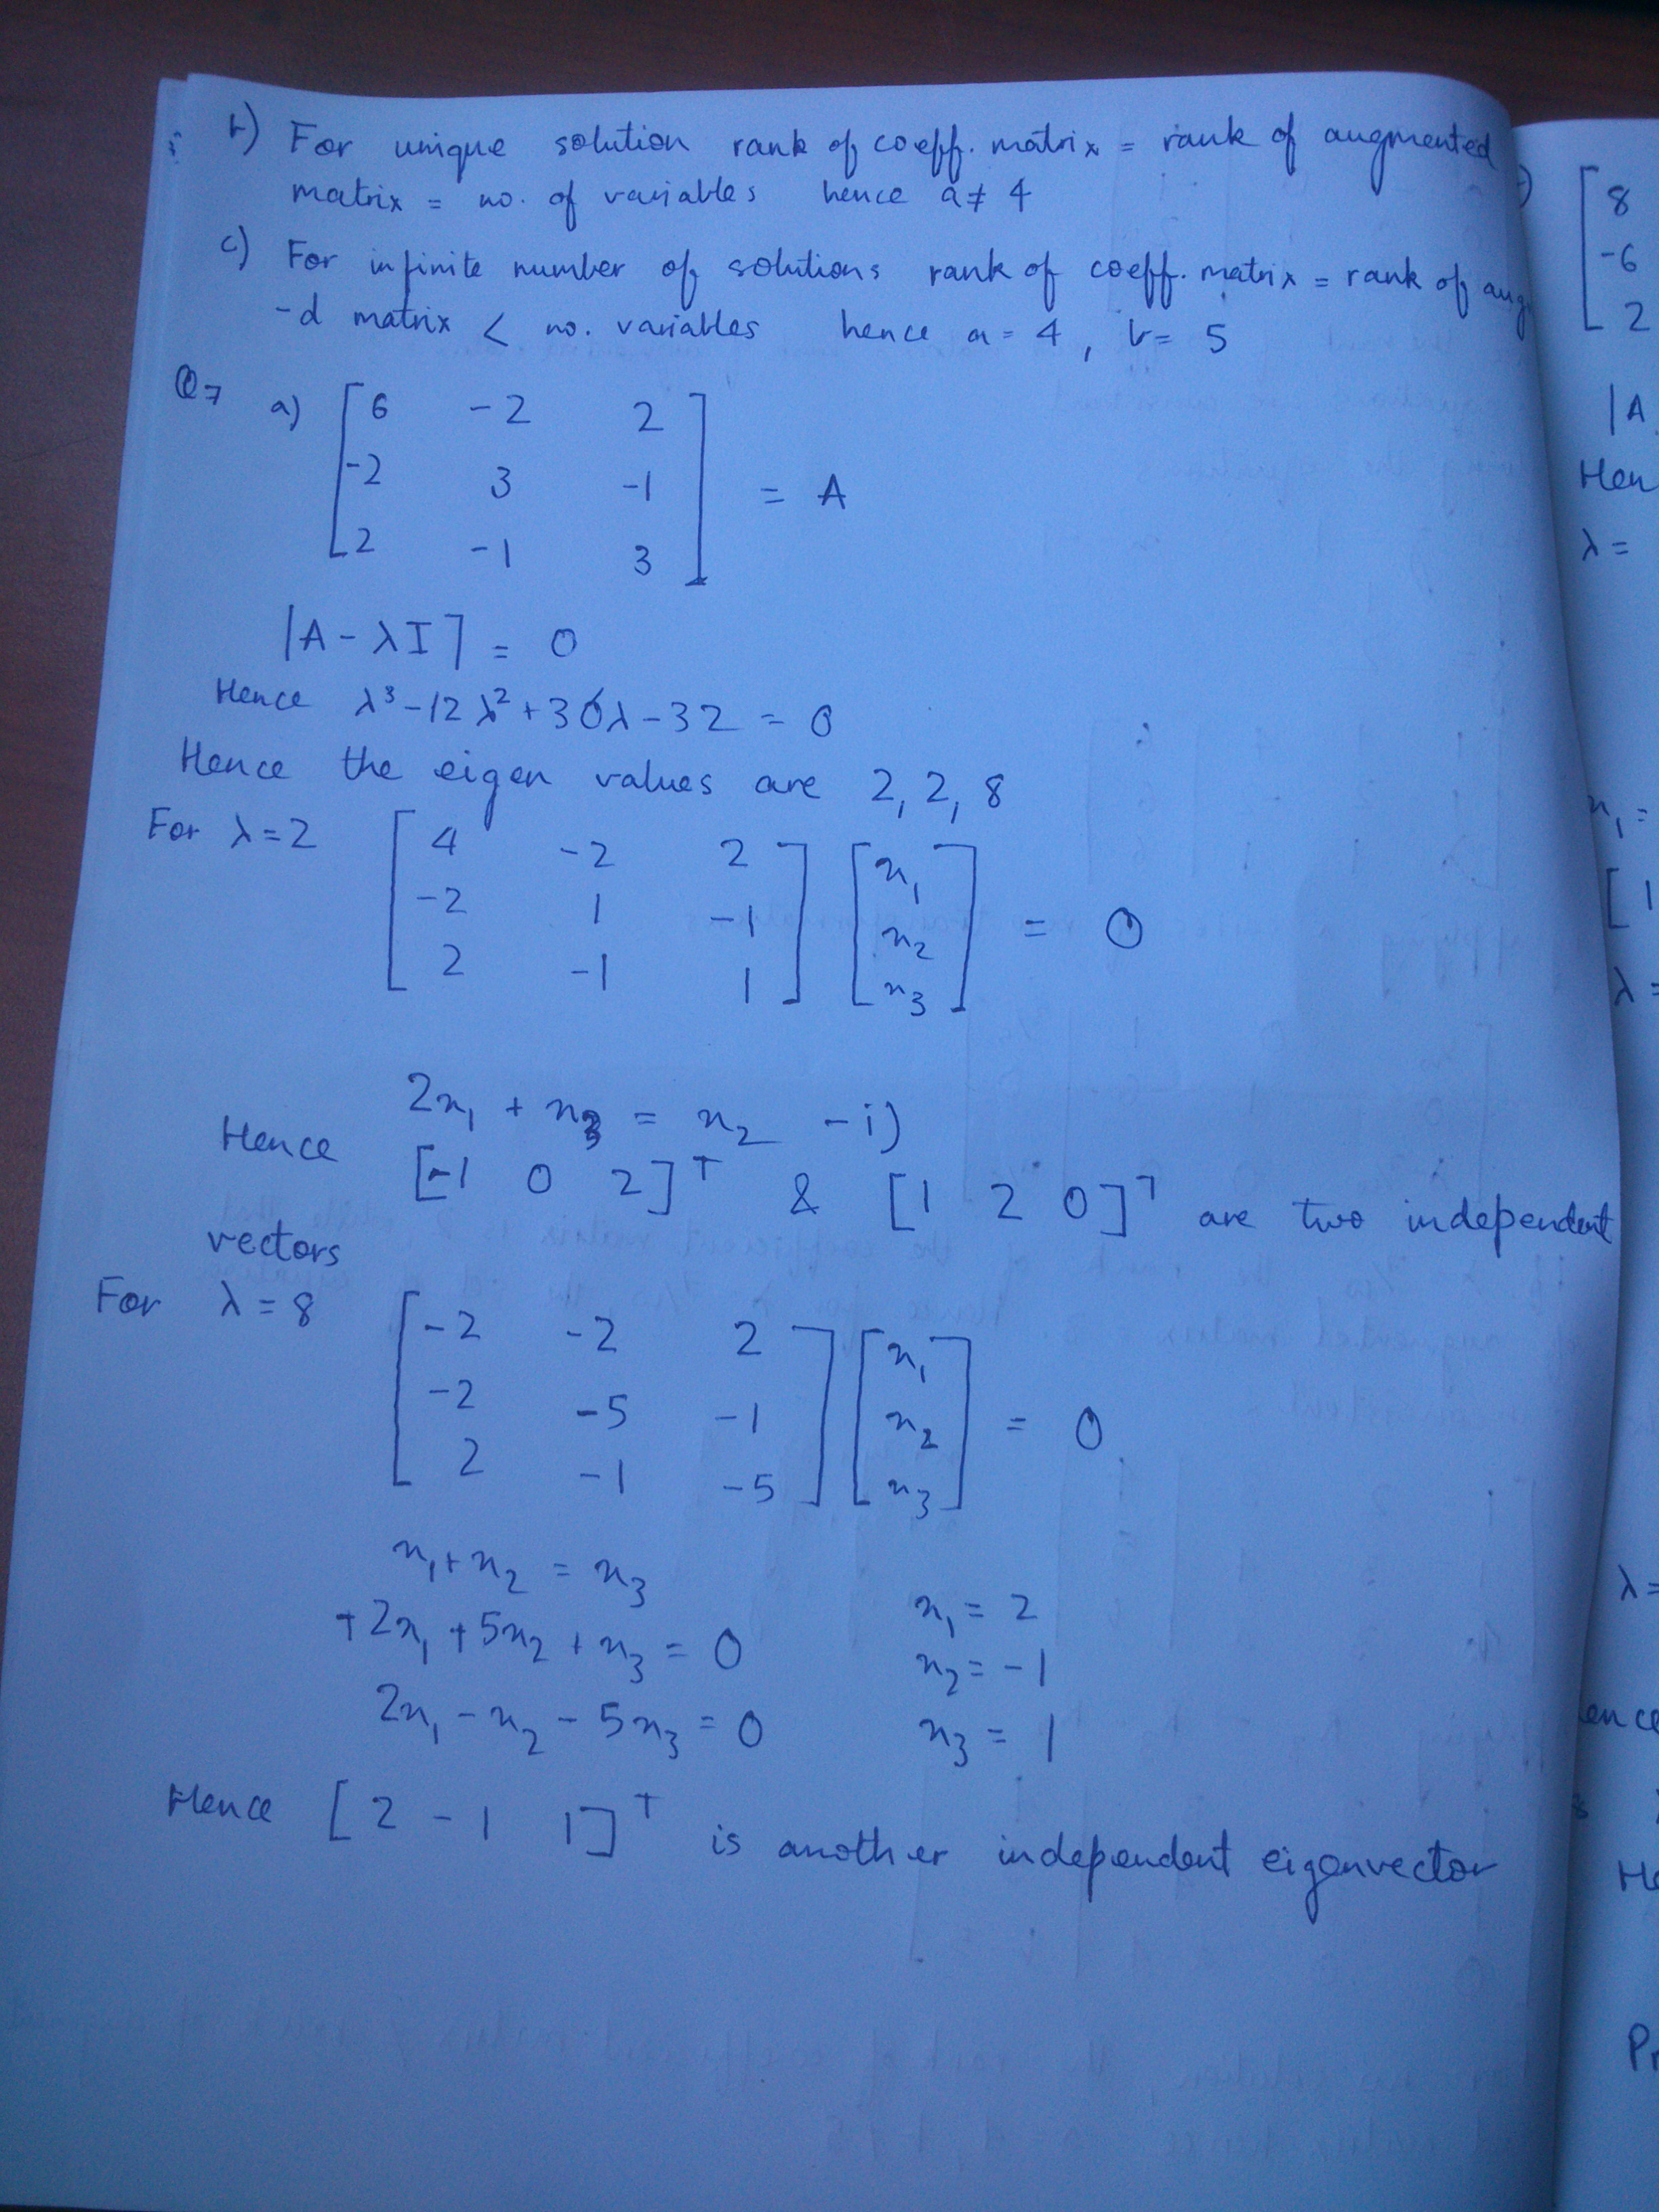 b) For unique solution rank of coeff. matrix = rank of augmented
matrix = no. of variables hence a ≠ 4
c) For infinite number of solutions rank of coeff. matrix = rank of aug
-d matrix < no. variables hence a = 4, b = 5
Q7 a) [6 -2 2
-2 3 -1
2 -1 3] = A
|A - λI| = 0
Hence λ³ - 12λ² + 36λ - 32 = 0
Hence the eigen values are 2, 2, 8
For λ = 2 [4 -2 2
-2 1 -1
2 -1 1] [x₁
x₂
x₃] = 0
2x₁ + x₃ = x₂ - i)
Hence [-1 0 2]ᵀ & [1 2 0]ᵀ are two independent
vectors
For λ = 8 [-2 -2 2
-2 -5 -1
2 -1 -5] [x₁
x₂
x₃] = 0
x₁ + x₂ = x₃
+2x₁ + 5x₂ + x₃ = 0
2x₁ - x₂ - 5x₃ = 0
x₁ = 2
x₂ = -1
x₃ = 1
Hence [2 -1 1]ᵀ is another independent eigenvector
[8
-6
2
|A
Hen
λ =
x₁ =
[1
λ =
λ =
ence
He
Pr